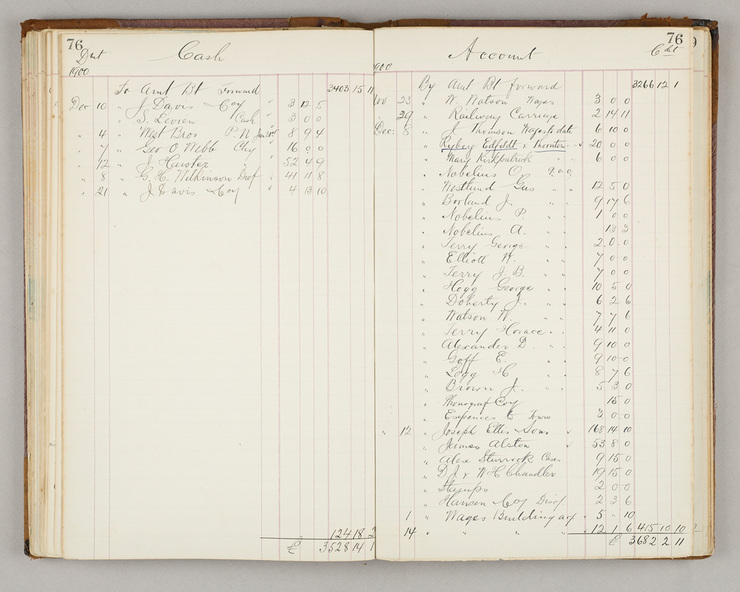 76
Cash
Dbt
1900
To Amt Bt Forward 2403 15 11
Dec 10 " J. Davis & Coy " 3 12 5
" S. Levien Cash " 3 0 0
" 4 " West Bros P.N. 8 9 4
" 7 " Geo O Webb Chq " 16 00
" 12 " J. " 52 4 9
" 8 " G. H. Wilkinson Draf " 41 11 8
" 21 " J Davis & Coy " 4 13 10
124 18 2
£ 3528 14 1
76
Account
Cdt
1900
By Amt Bt forward 3266 12 1
Nov 23 " W. Watson Wages 3 0 0
" 29 " Railway Carriage 2 14 11
Dec 8 " J Thomson Wages to date 6 10 0
" Rybey Edfeldt & Thornton " 20 0 0
" Mary Kirkpatrick " 6 0 0
" Nobelius C.
" Westlund Gus " " 12 5 0
" Borland J. " " 9 17 6
" Nobelius P. " " 1 00
" Nobelius A. " " 13 3
" Terry George " " 2 0 0
" Elliott W. " " 7 00
" Terry J. B. " " 7 00
" Hogg George " " 10 5 0
" Doherty J. " " 6 2 6
" Watson W. " " 7 7 6
" Terry Horace " " 4 11 0
" Alexander D. " " 9 10 0
" Goff E. " " 9 10 0
" Logg H " " 8 7 6
" Brown J. " " 5 3 0
" Phonograf Coy 15 0
" Expences to Town 3 0 0
" 12 " Joseph Ellis & Sons " 168 14 10
" James Alston " 53 8 0
" Alex Sturrock Cases 9 15 0
" D. J. & W H Chandler 19 15 0
" Stamps 2 00
" Hansen & Coy Draf 2 3 6
1 " Wages Building a/c " 5 - 10
14 " " " " 12 1 6 415 10 10
£ 3682 2 11